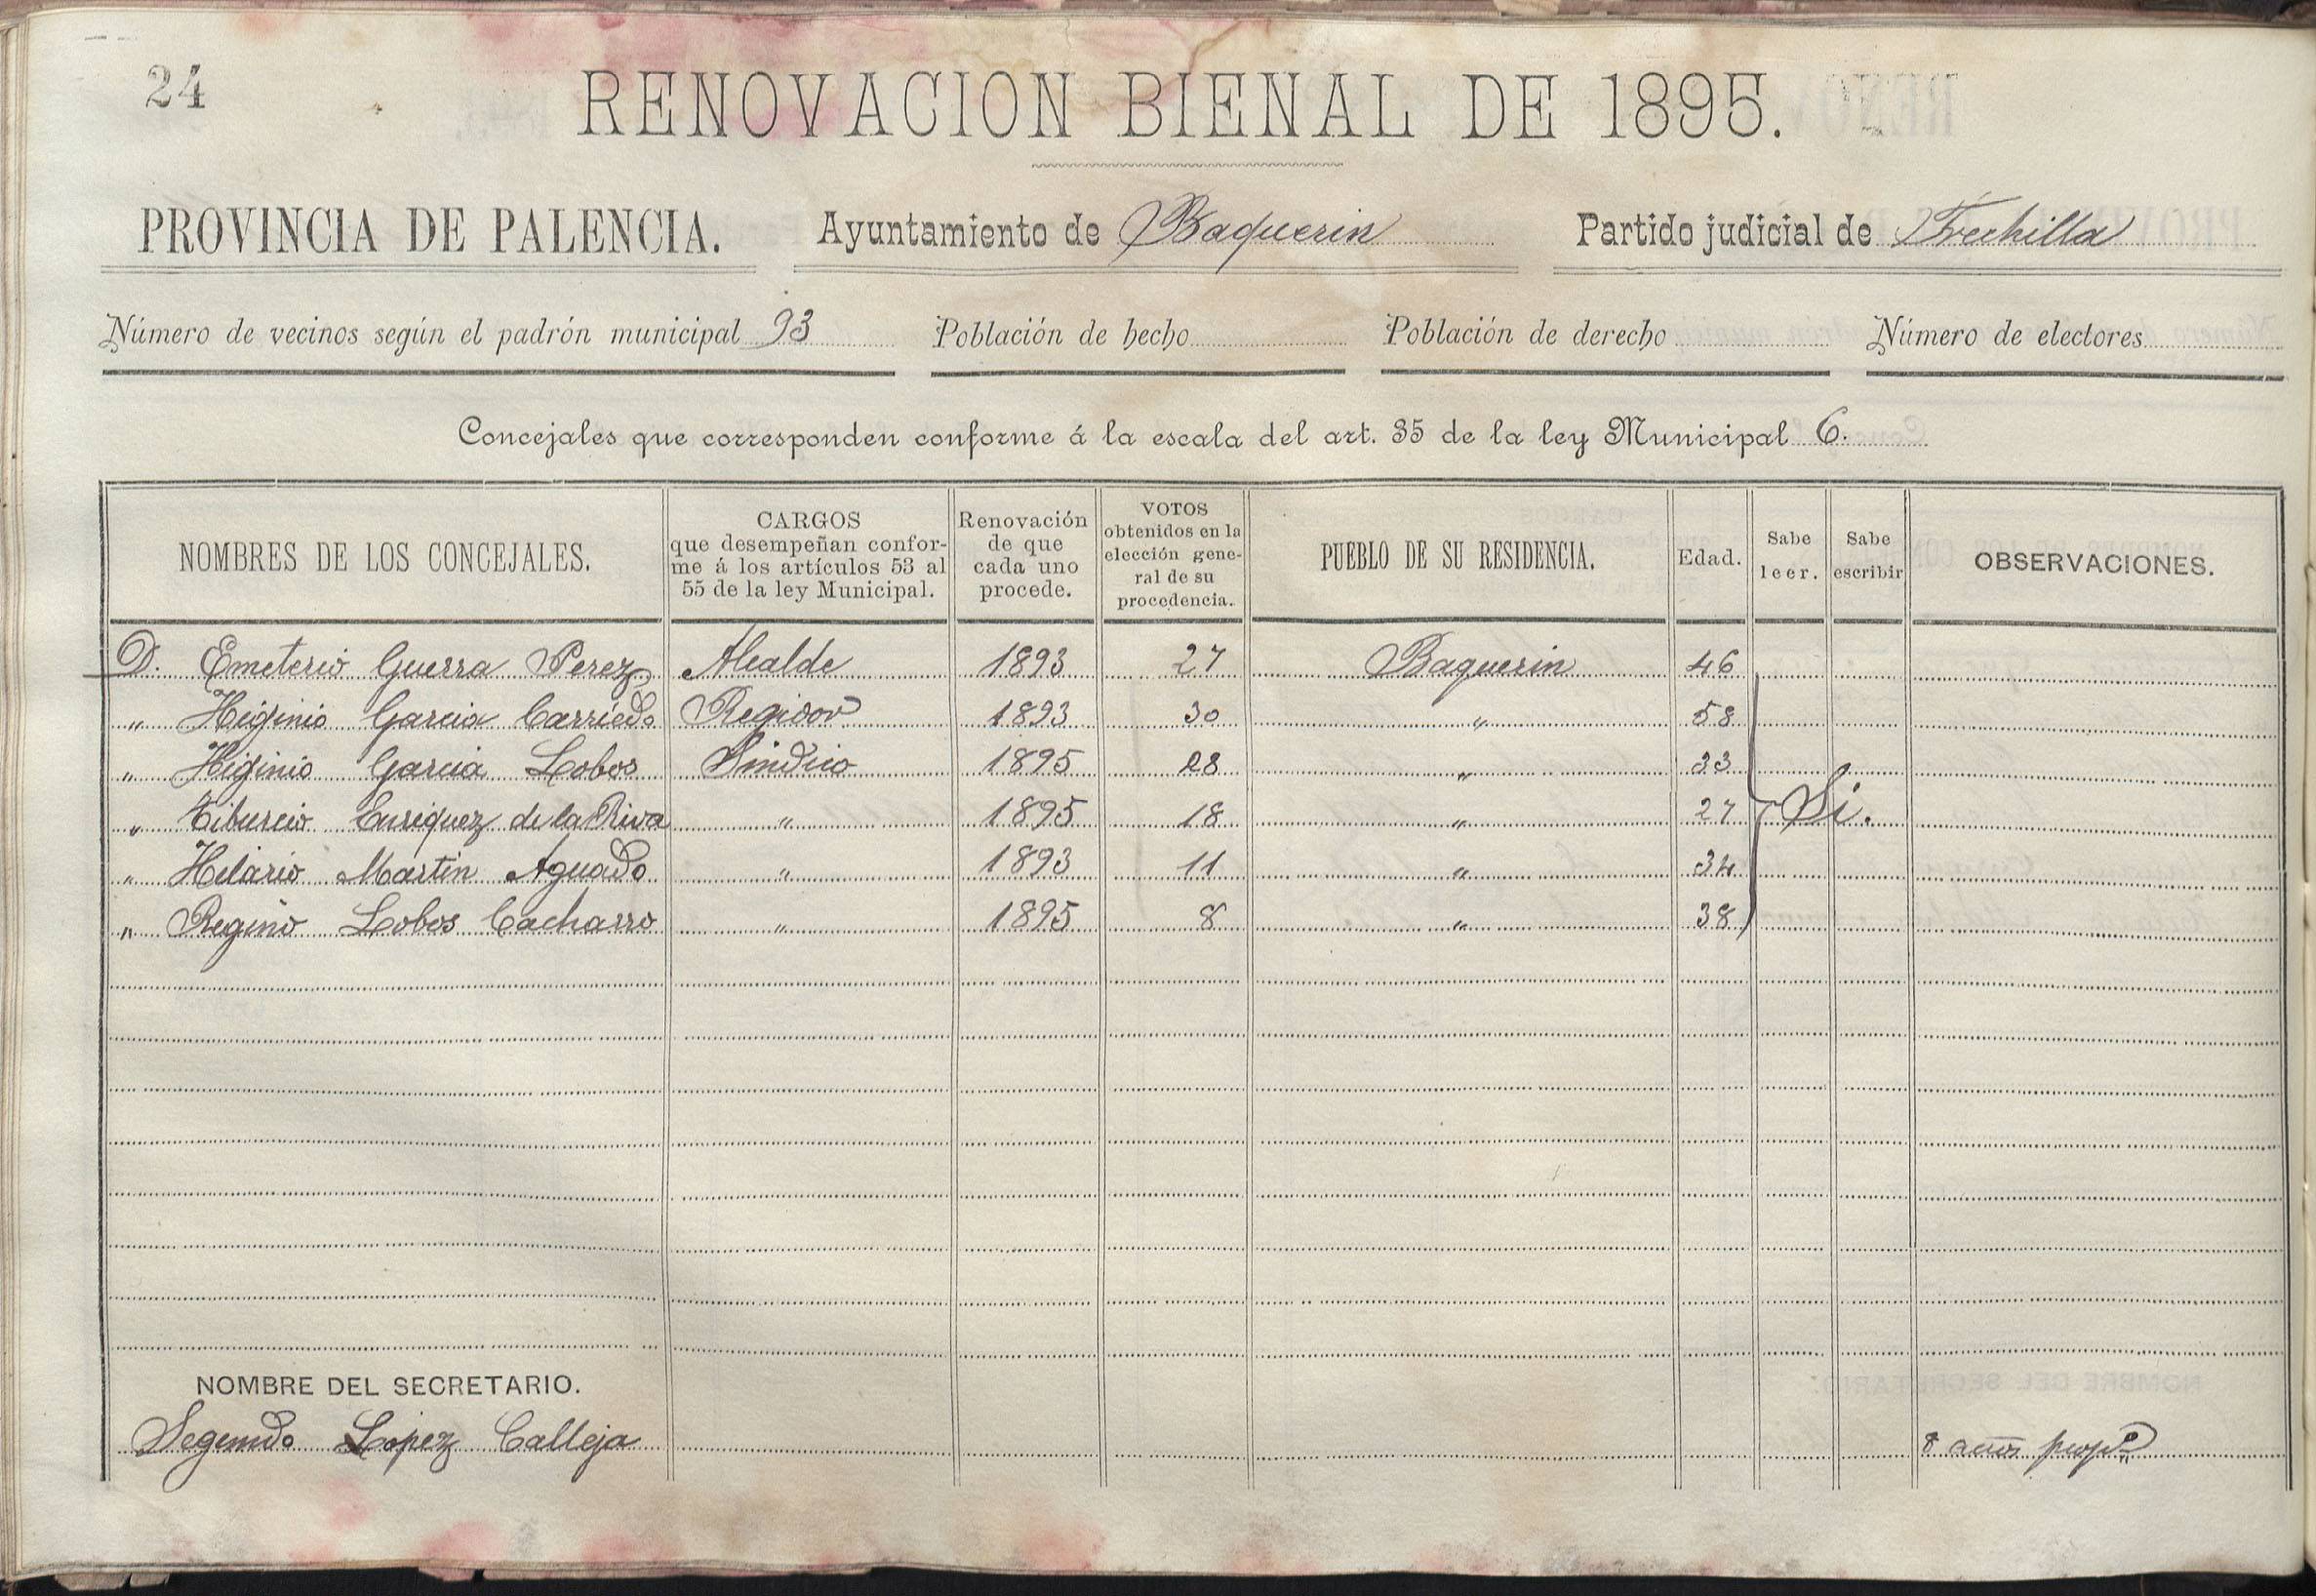 24
RENOVACION BIENAL DE 1895.
PROVINCIA DE PALENCIA. Ayuntamiento de Baquerin Partido judicial de Frechilla
Número de vecinos según el padrón municipal 93 Población de hecho Población de derecho Número de electores
Concejales que corresponden conforme á la escala del art. 35 de la ley Municipal 6.
NOMBRES DE LOS CONCEJALES. CARGOS que desempeñan confor- me á los artículos 53 al 55 de la ley Municipal. Renovación de que cada uno procede. VOTOS obtenidos en la elección gene- ral de su procedencia. PUEBLO DE SU RESIDENCIA. Edad. Sabe leer. Sabe escribir OBSERVACIONES.
D. Emeterio Guerra Perez Alcalde 1893 27 Baquerin 46
" Higinio Garcia Carriedo Regidor 1893 30 " 58
" Higinio Garcia Lobos Sindico 1895 28 " 33
" Tiburcio Enriquez de la Riva " 1895 18 " 27 Si.
" Hilario Martin Aguado " 1893 11 " 34
" Regino Lobos Cacharro " 1895 8 " 38
NOMBRE DEL SECRETARIO.
Segundo Lopez Calleja 8 años